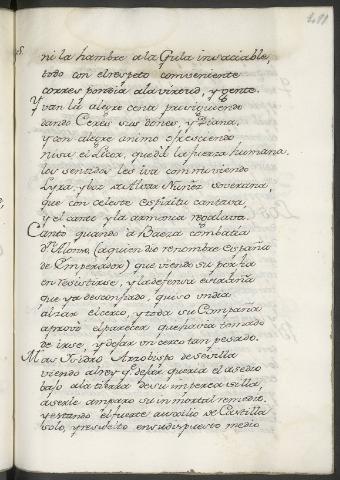 ni la hambre a la Gula insaciable,
todo con el respeto conveniente
corres pondia a la virtud, y gente.
Y van la alegre cena prosiguiendo
dando Ceres sus dones, y Diana,
y con alegre animo ofreciendo
Nisa el Licor, que dà la fuerza humana.
los sentidos les iva conmoviendo
Lyra, y boz de Alvar Nuñez soverana,
que con celeste espiritu cantava,
y el canto y la armonia regalava.
Cantò quando a Baeza combatia
Dn Alonso, (a quien dio renombre españa
de Emperador) que viendo su porfia
en resistirse, y la defensa estraña
que ya desconfiado, quiso un dia
alzar el cerco, y toda su Compañia
aprovò el parecer que havia tomado
de irse, y dejar un cerco tan pesado.
Mas Isidro Arzobispo de Sevilla
viendo al Rey qe dejar queria el asedio
bajo a la tierra de su
a serle amparo su inmortal remedio.
y estando el fuerte auxilio de Castilla
solo, y resuelto en su dispuesto medio